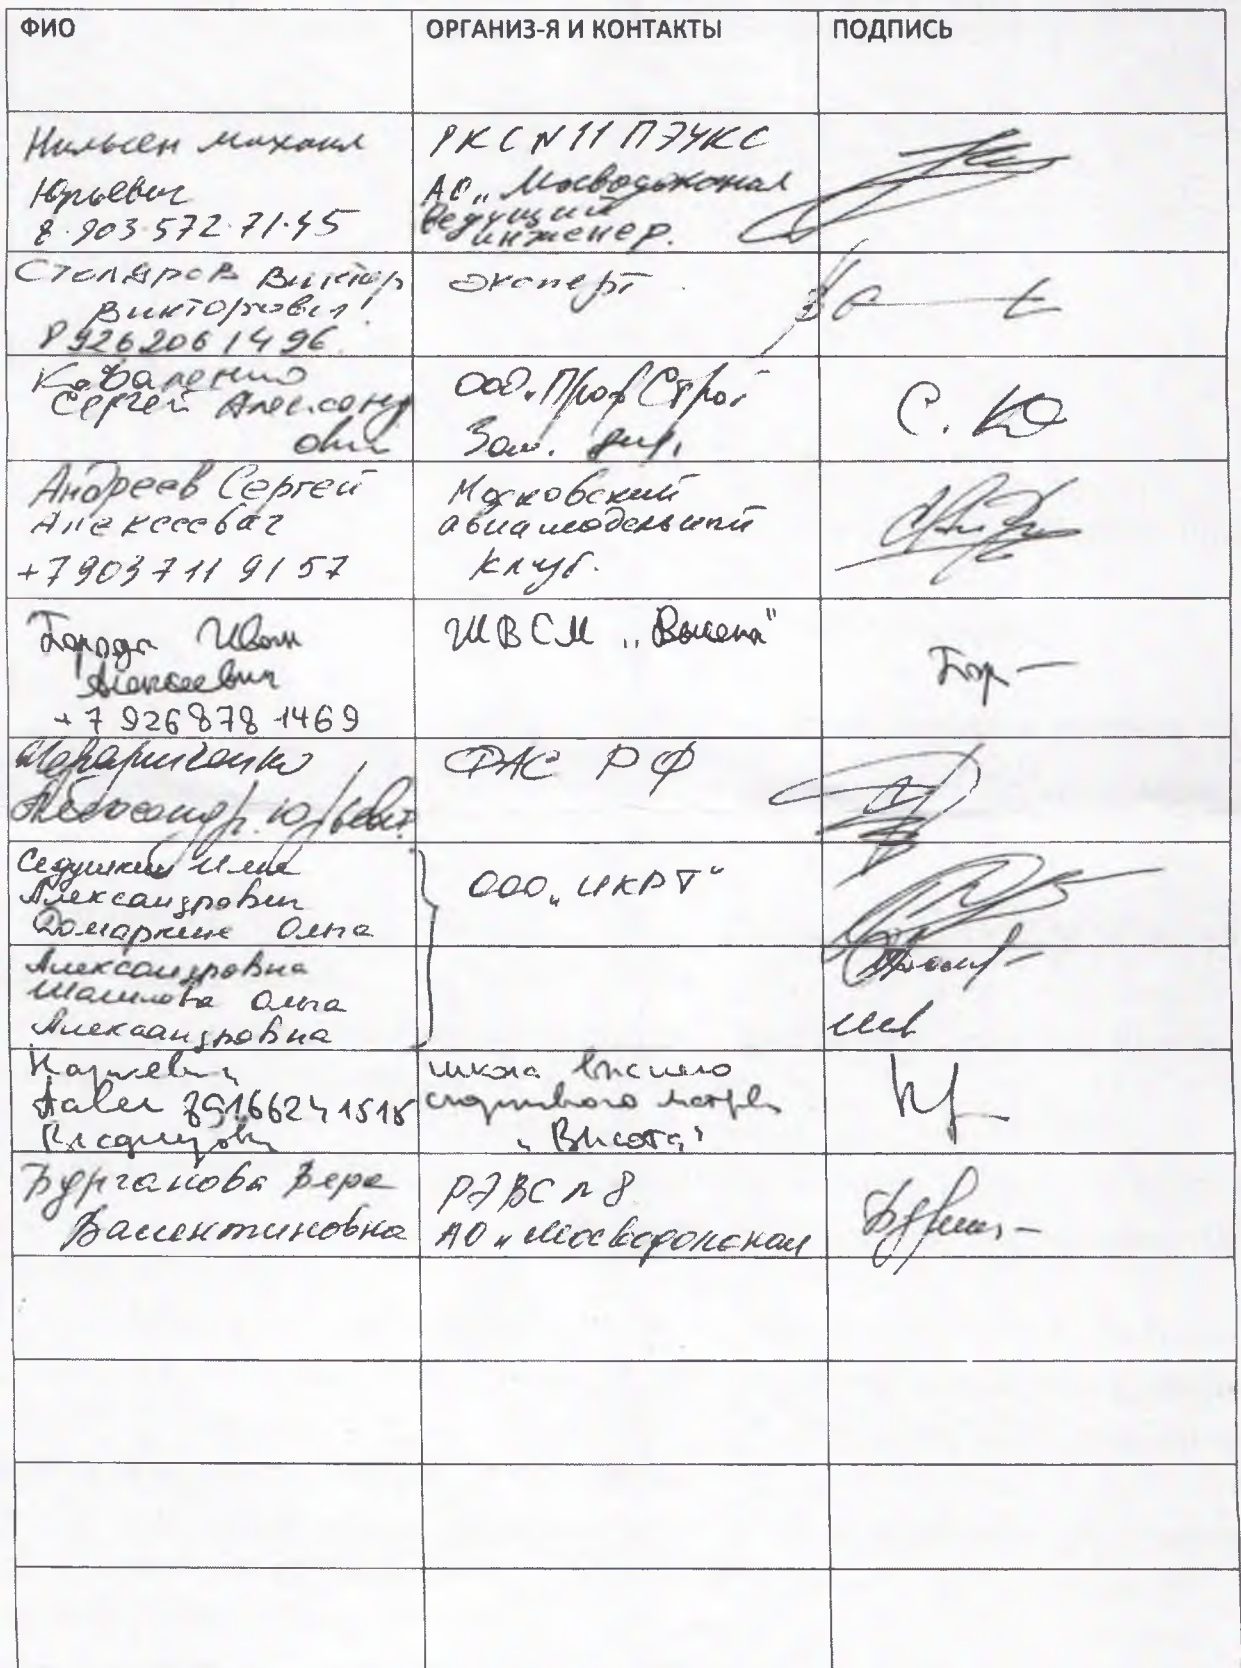 ФИО
ОРГАНИЗ-Я И КОНТАКТЫ
ПОДПИСЬ
Нильсен Михаил
Юрьевич
8.903.572.71.45
РКС N 11 ПЭУКС
АО „Мосводоканал
Ведущий
инженер.
Столяров Виктор
Викторович
8 926 206 14 96
эксперт
Коваленко
Сергей
ООО „ПрофСтрой
Зам. дир.
С. Ко
Андреев Сергей
Алексеевич
+7 903 711 91 57
Московский
авиамодельный
клуб.
Борода Иван
Алексеевич
+7 926 878 1469
ШВСМ „Высота"
Бор
Александр Юрьевич
ФАС РФ
Седушкин Илья
Александрович
Ольга
ООО „ИКРТ"
Александровна
Ольга
Александровна
Павел 89166241515
школа высшего
спортивного
„Высота"
Бурганова Вера
Валентиновна
РЭВС № 8
АО „Мосводоканал